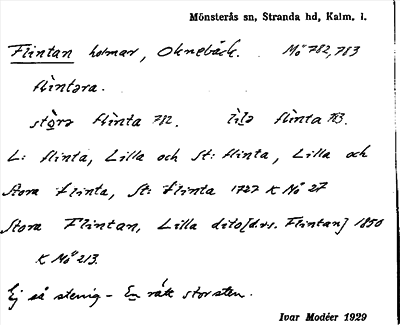 Mönsterås sn, Stranda hd, Kalm. l.
Flintan holmar, Oknebäck. Mö 782, 783
flìntəra.
stò̱rə flìnta 782. lìl̥ə flìnta 783.
L: flinta, Lilla och St: flinta, Lilla och
Stora flinta, St: flinta 1727 K Mö 27
Stora Flintan, Lilla dito [d.v.s. Flintan] 1850
K Mö 213.
Ej så stenig – En råk stor sten.
Ivar Modéer 1929